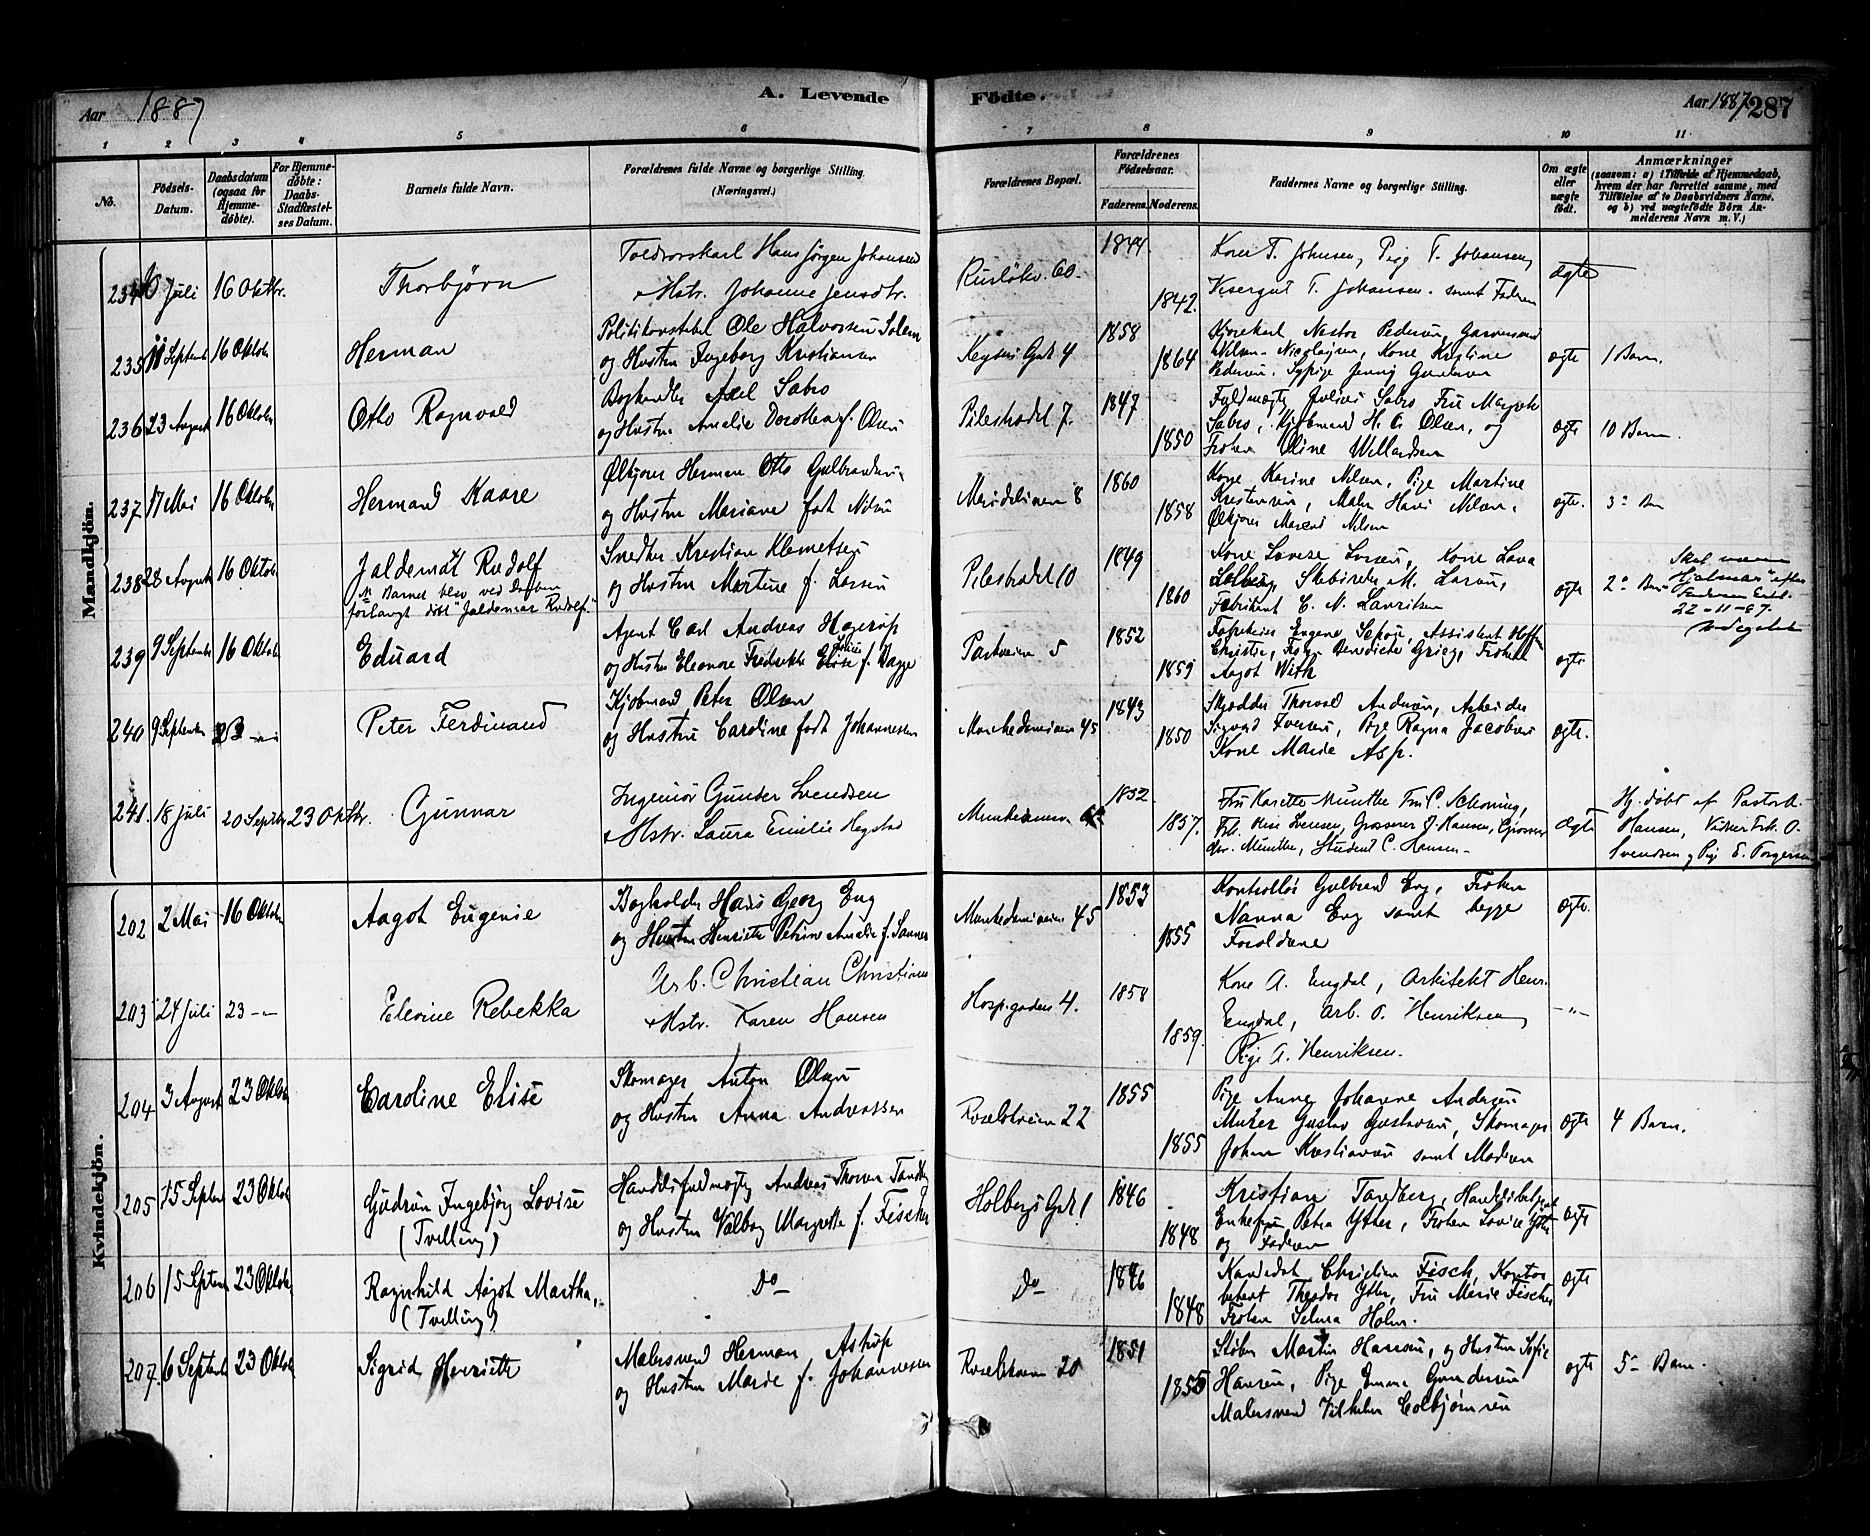 Aar 1887
A. Levende
Födte.
Aar 1887 287
1 2 3 4 5 6 7 8 9 10 11
No.
Födsels-Datum.
Daabsdatum (ogsaa for Hjemmedöbte).
For Hjemmedöbte: Daabs-Stadfæstelses Datum.
Barnets fulde Navn.
Forældrenes fulde Navne og borgerlige Stilling. (Næringsvei.)
Forældrenes Bopæl.
Forældrenes Födselsaar.
Faderens. Moderens.
Faddernes Navne og borgerlige Stilling.
Om ægte eller uægte födt.
Anmærkninger
(saasom: a) i Tilfælde af Hjemmedaab, hvem der har forrettet samme, med Tilföielse af to Daabsvidners Navne, og b) ved uægtefödte Börn Anmelderens Navn m. V.)
Mandkjön.
234 Juli 16 Oktbr. Thorbjörn
Hans Jörgen Johansen
Hstr. Johanne Jensdtr.
Rusløkv. 60. 1844 1842.
Kone T. Johnsen, Pige T. Johansen,
T. Johansen. samt Faderen
ægte
235 Septemb 16 Oktob Herman
Politikonstabel Ole Halvorsen Solem
og Hustru Ingeborg Kristiansen
Keysers Gade 4 1858 1864
Nestor Pedersen,
Nilsen Nicolaysen, Kone Kristine
Pedersen, Sypige Jenny
ægte 1 Barn.
236 23 August 16 Oktob Otto Ragnvald
Boghandler Axel Sabro
og Hustru Amalie Dorothea f. Olsen
Pilestrædet 7. 1847 1850
Fuldmægtig Julius Sabro Fru
Sabro, Kjøbmand H. C. Olsen, og
Frøken Oline Willardsen
ægte 10 Barn.
237 17 Mai 16 Oktob Hermand Kaare
Ølkjører Herman Otto Gulbrandsen
og Hustru Mariane født Nilsen
8 1860 1858
Kone Karine Nilsen, Pige Martine
Kristensen, Maler Hans Nilsen,
Ølkjører Nilsen
ægte. 3 Barn
238 28 August 16 Oktob Jaldemar Rudolf
Barnet blev ved Daaben
forlangt döbt "Jaldemar Rudolf"
Snedker Kristian Klemetsen
og Hustru Martine f. Larsen
Pilestrædet 10 1849 1860
Kone Lovise Larsen, Kone Lava
Solberg, M. Larsen,
Fabrikant C. N. Lauritsen
ægte 2 Barn
Skal være
"Hjalmar" efter
22-11-67.
239 9 Septemb 16 Oktob Eduard
Agent Carl Andreas Hagerup
og Hustru Eleonore Fredrikke Elise f. Bagge
Parkveien 5 1852 1859
Eugene Assistent
Christie, Benedicte Grieg, Frøken
Aagot With
ægte
240 9 September 23 -"- Peter Ferdinand
Kjøbmand Peter Olsen
og Hustru Caroline født Johannessen
Munkedamsveien 45 1843 1850
Skrædder Thorvald Andersen, Arbeider
Sigvard Iversen, Pige Ragna Jacobsen
Kone Marie Asp.
ægte.
241. 18 Juli 20 Septbr 23 Oktbr. Gunnar
Ingeniør Gunder Svendsen
Hstr. Laura Emilie Hegstad
1852. 1857.
Fru Karette Munthe Fru C. Schøning,
Frk. Grosserer J. Hansen, Grosserer
Munthe, Student C. Hansen.
ægte
Hj. döbt af Pastor A.
Hansen, Vidner Frk. O.
Svendsen og Pige E. Torgersen
Kvindekjön.
202 2 Mai 16 Oktob Aagot Eugenie
Bogholder Hans Georg Eng
og Hustru Henriette Petrine Amalie f. Sannes
Munkedamsveien 45 1853 1855
Kontrollør Gulbrand Eng, Frøken
Nanna Eng samt begge
Forældrene
ægte.
203 24 Juli 23 -"- Elevine Rebekka
Arb. Christian Christiansen
Hstr. Karen Hansen
Hosp. gaden 4. 1858 1859.
Kone A. Engdal, Arkitekt Henr.
Engdal, Arb. O. Henriksen,
Pige A. Henriksen.
-"-
204 3 August 23 Oktob Caroline Elise
Skomager Anton Olsen
og Hustru Anna Andreassen
22 1855 1855
Pige Anne Johanne Andersen
Murer Gustav Gustavsen, Skomager
Johan Kristiansen samt Moderen
ægte 4 Barn.
205 15 Septemb 23 Oktob Gudrun Ingebjörg Lovise
(Tvilling)
Handelsfuldmægtig Andreas Thorvar Tandberg
og Hustru Valborg Margrethe f. Fischer
Holbergs Gade 1 1846 1848
Kristian Tandberg, Handelsbetjent
Enkefru Petra Ytter, Frøken Lovise Ytter
og Faderen
ægte
206 15 Septemb 23 Oktob Ragnhild Aagot Martha,
(Tvilling)
Do Do 1846 1848
Kandidat Christian Fisch, Kontor
betjent Theodor Ytter, Fru Marie Fischer
Frøken Selma Holm.
ægte
207. 6 Septemb 23 Oktob Sigrid Henriette
Malersvend Herman Astrup
og Hustru Marie f. Johannesen
20 1851 1855
Støber Martin Hansen, og Hustru Sofie
Hansen, Pige Emma Gundersen
Malersvend Vilhelm Colbjørnsen
ægte 5 Barn.